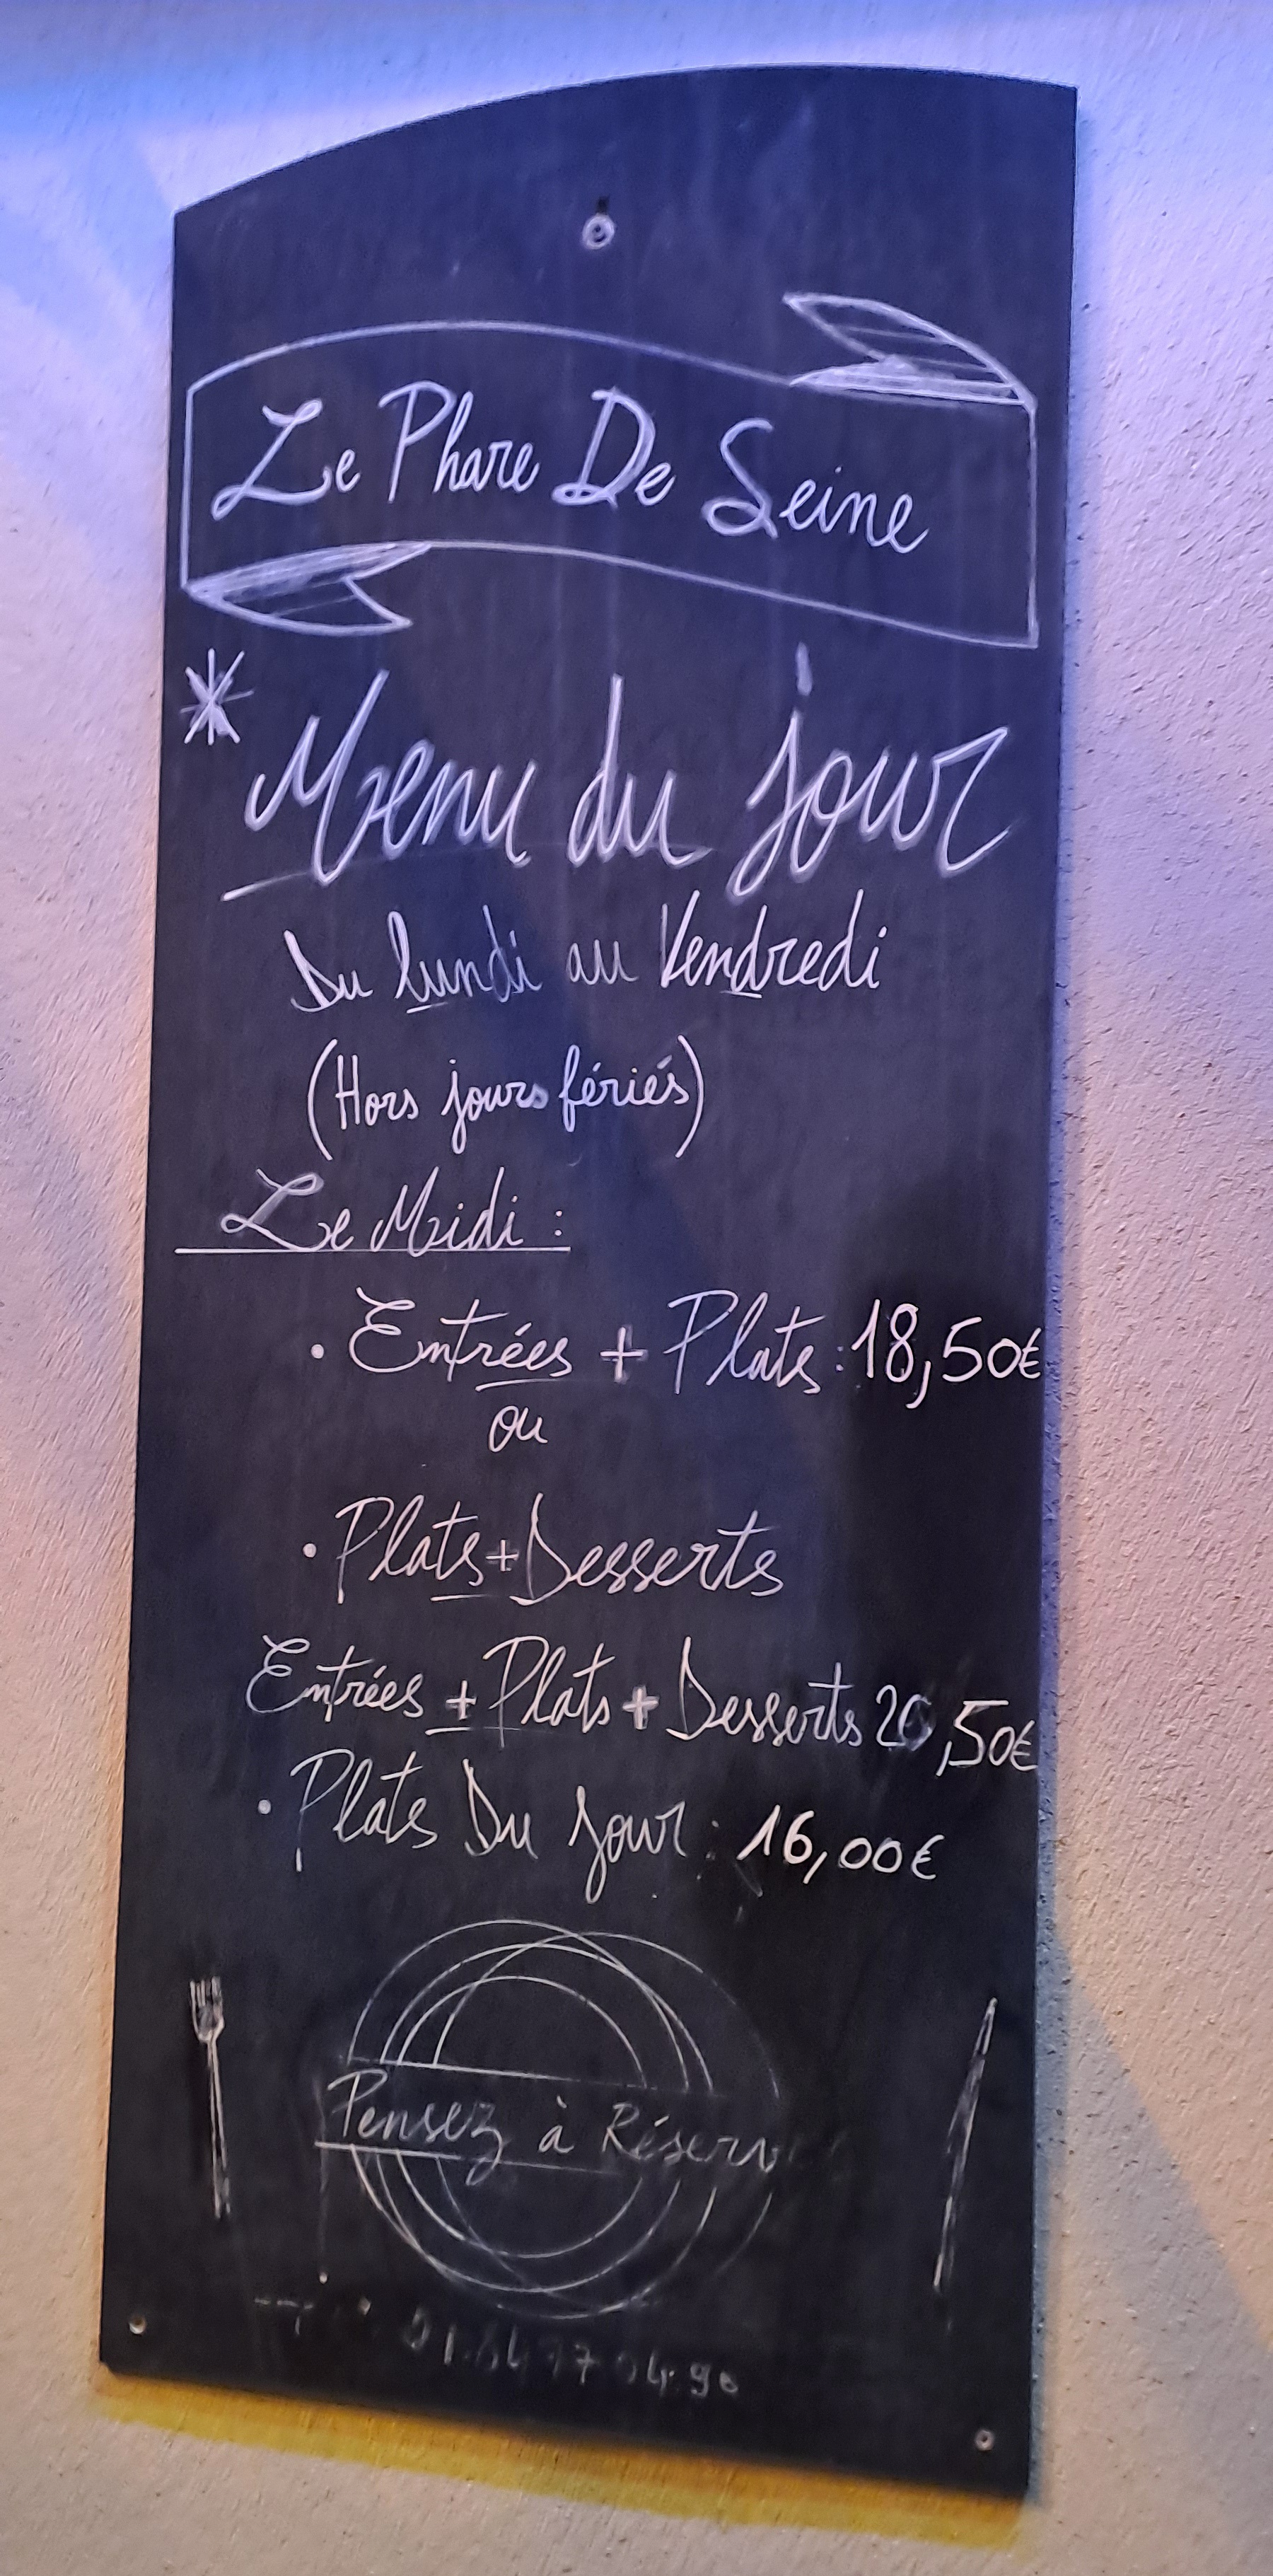 Le Phare De Seine
* Menu du jour
Du lundi au Vendredi
(Hors jours fériés)
Le Midi :
• Entrées + Plats : 18,50€
ou
• Plats + Desserts
Entrées + Plats + Desserts 20,50€
• Plats Du jour : 16,00€
Pensez à